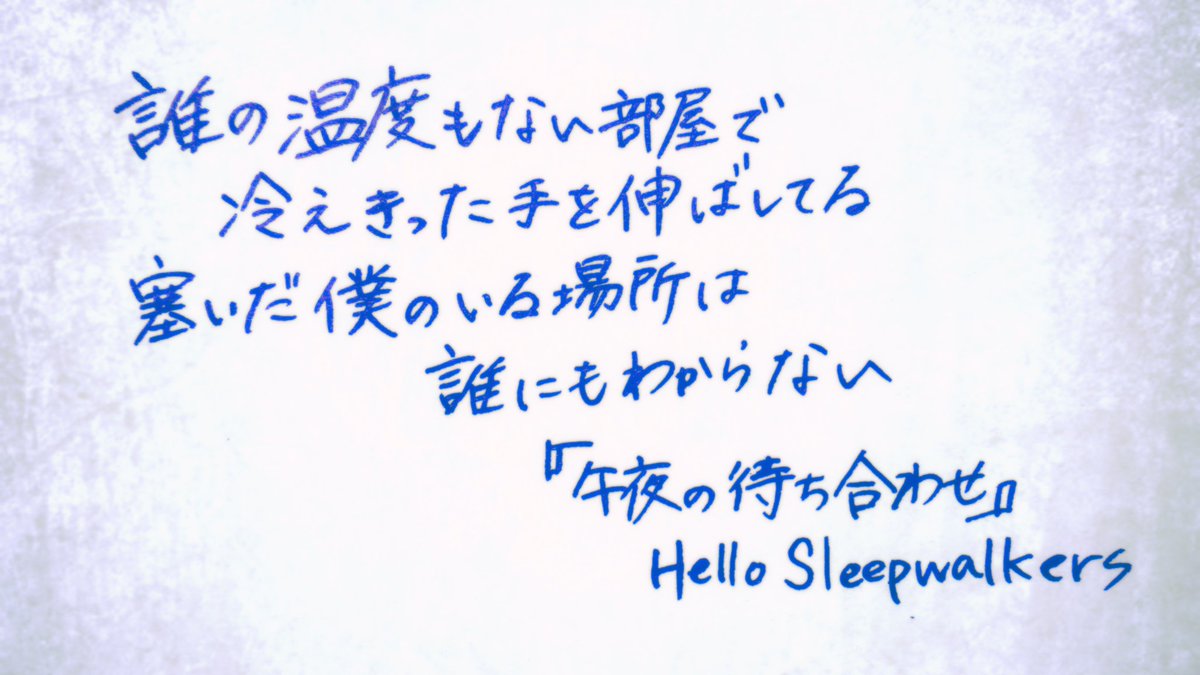 誰の温度もない部屋で
冷えきった手を伸ばしてる
塞いだ僕のいる場所は
誰にもわからない
『午夜の待ち合わせ』
Hello Sleepwalkers